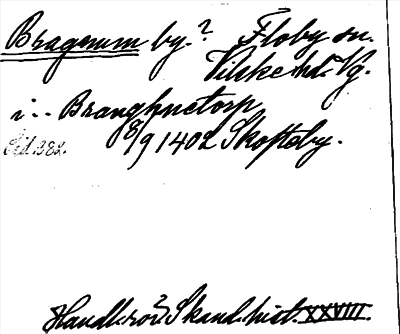 Bragnum by.? Floby sn.
Vilske hd. Vg.
i .. Branghnetorp
8/9 1402 Skofteby.
Sid. 382.
Handl. rör. Skand. hist. XXVIII.